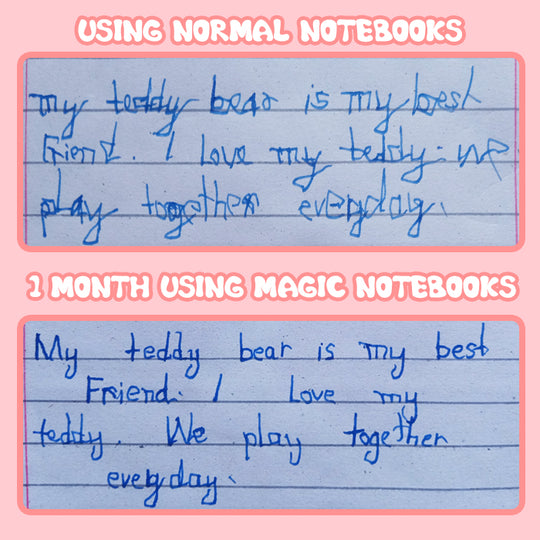 USING NORMAL NOTEBOOKS
my teddy bear is my best
Friend. I Love my teddy. we
play together everyday.
1 MONTH USING MAGIC NOTEBOOKS
My teddy bear is my best
Friend. I Love my
teddy. We play together
everyday.